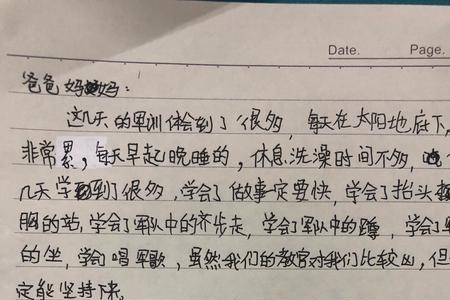 Date. Page.
爸爸妈妈:
这几天的军训体会到了很多, 每天在太阳地底下,
非常累, 每天早起晚睡的, 休息.洗澡时间不多,
几天学到了很多, 学会了做事一定要快, 学会了抬头
胸的站, 学会了军队中的齐步走, 学会了军队中的蹲, 学会了
的坐, 学会唱军歌, 虽然我们的教官对我们比较凶, 但
定能坚持下来.